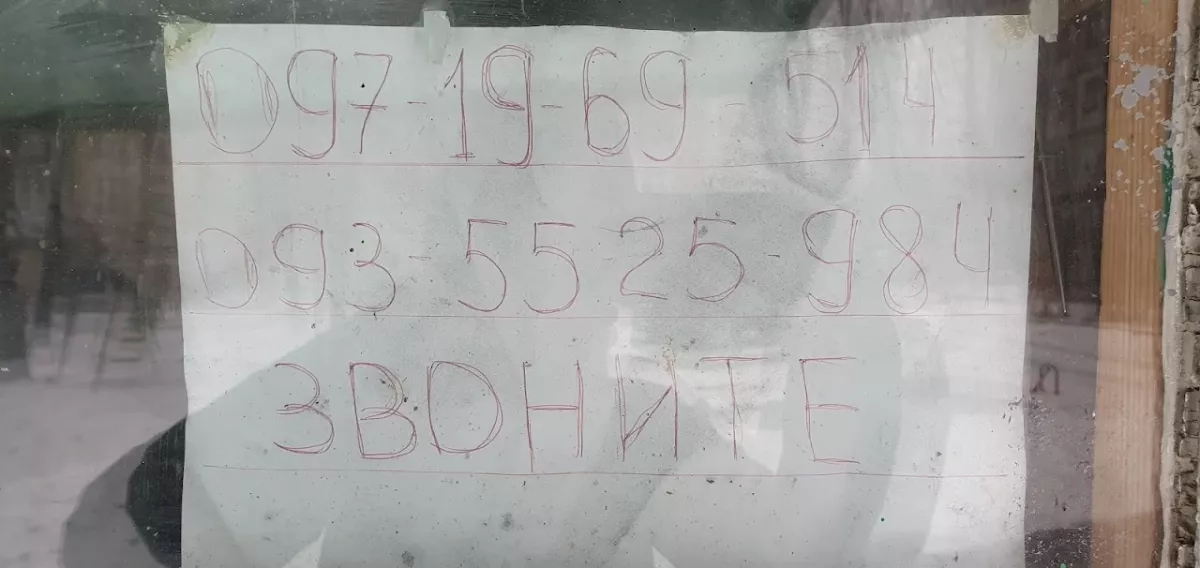 097-19-69-514
093-55-25-984
ЗВОНИТЕ